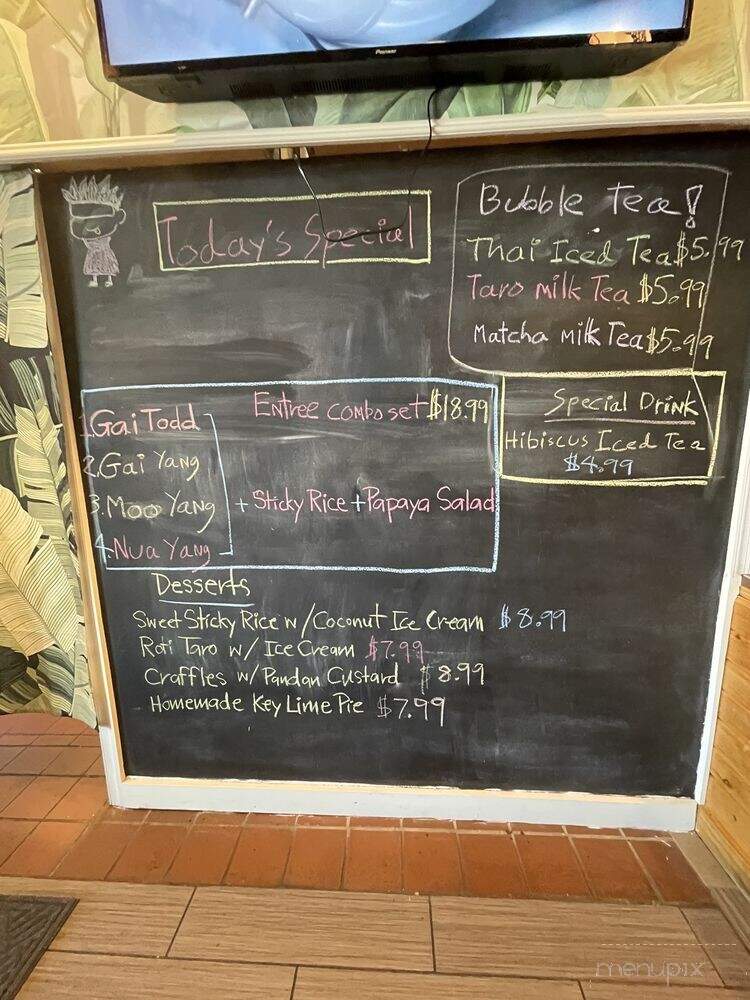 Pioneer
Today's Special
Bubble Tea!
Thai Iced Tea $5.99
Taro milk Tea $5.99
Matcha milk Tea $5.99
Entree combo set $18.99
1. Gai Todd
2. Gai Yang
3. Moo Yang
4. Nua Yang
+ Sticky Rice + Papaya Salad
Special Drink
Hibiscus Iced Tea
$4.99
Desserts
Sweet Sticky Rice w/Coconut Ice Cream $8.99
Roti Taro w/ Ice Cream $7.99
Craffles w/Pandan Custard $8.99
Homemade Key Lime Pie $7.99
menupix